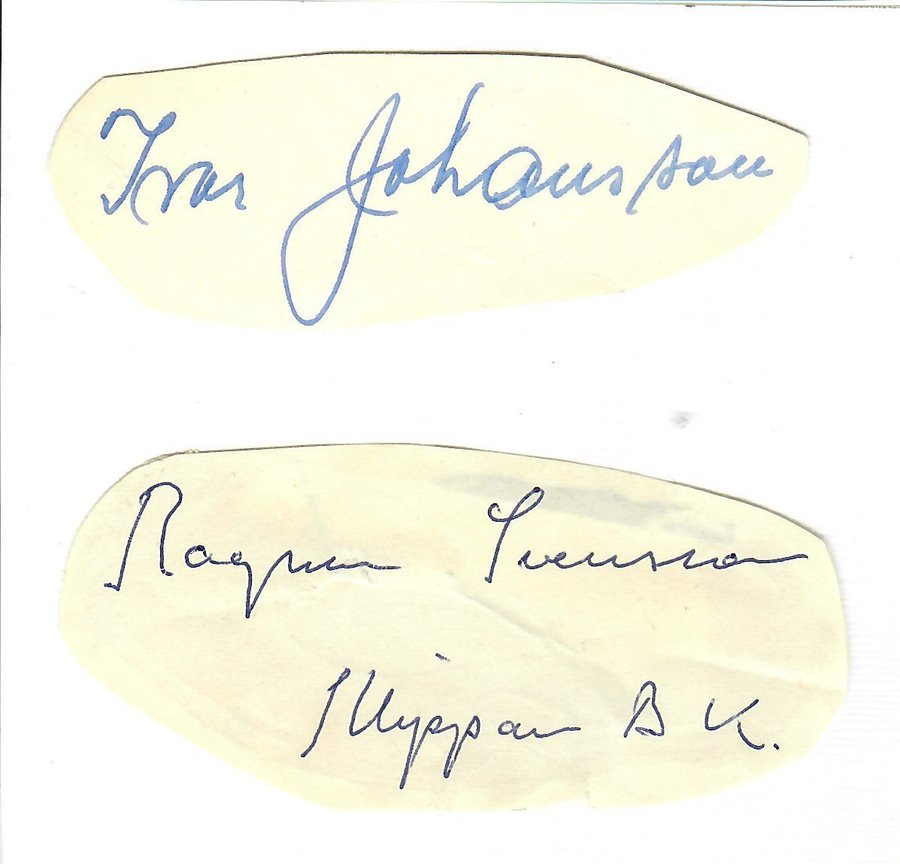 Ivar Johansson
Ragnar Svensson
Klippan B K.